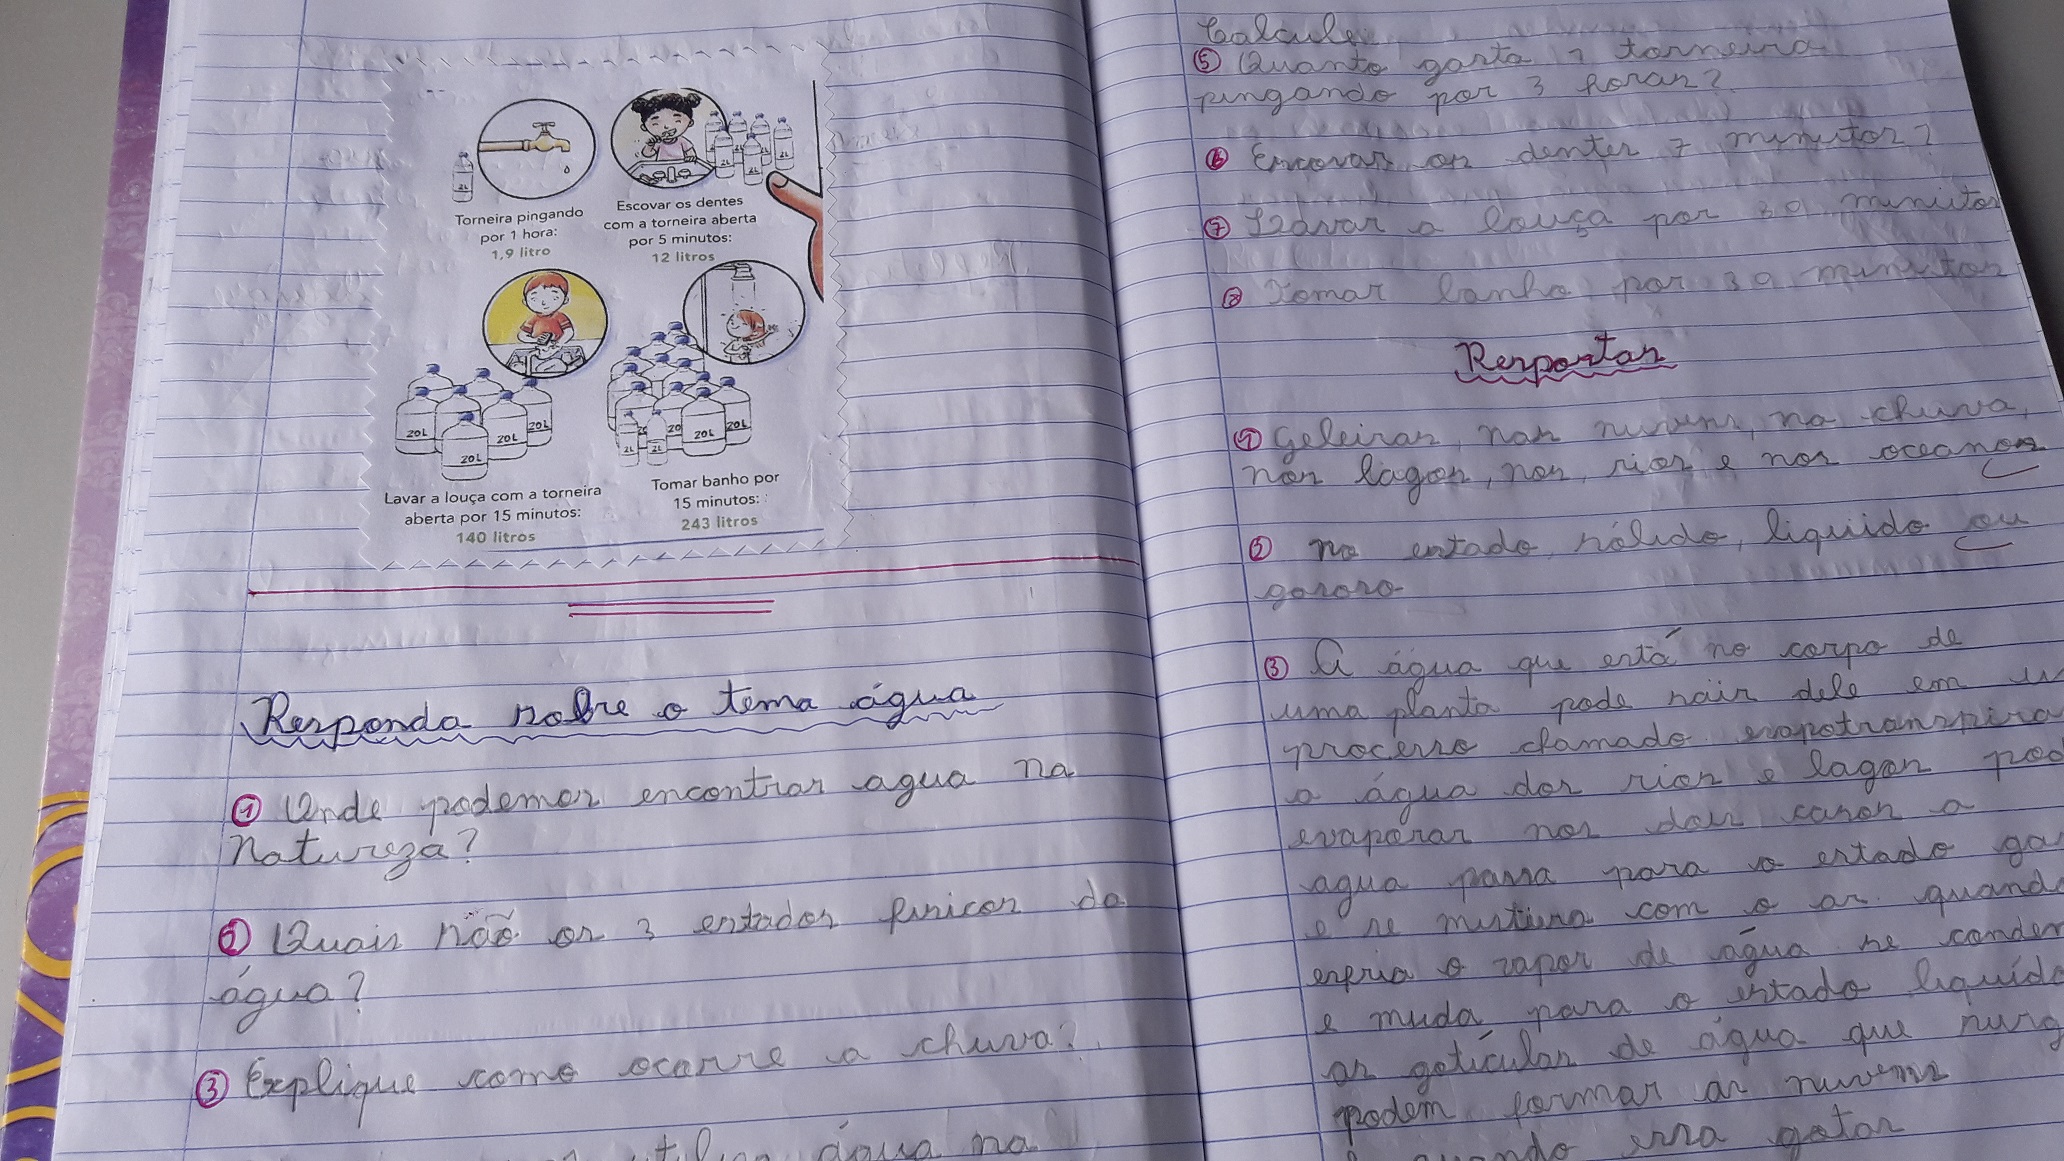 2L
2L
Torneira pingando
por 1 hora:
1,9 litro
Escovar os dentes
com a torneira aberta
por 5 minutos:
12 litros
20L
20L
20L
20L
Lavar a louça com a torneira
aberta por 15 minutos:
140 litros
20L
20L
2L
2L
Tomar banho por
15 minutos:
243 litros
Responda sobre o tema água
1 Onde podemos encontrar agua na
Natureza?
2 Quais são os 3 estados fisicos da
água?
3 Explique como ocorre a chuva?
água na
Calcule
5 Quanto gasta 1 torneira
pingando por 3 horas?
6 Escovar os dentes 7 minutos?
7 Lavar a louça por 30 minutos
8 Tomar banho por 30 minutos
Respostas
1 Geleiras, nas nuvens, na chuva,
nos lagos, nos, rios e nos oceanos
2 no estado, sólido, liquido ou
gasoso
3 A água que está no corpo de
uma planta pode sair dele em
processo chamado evapotranspira
a água dos rios e lagos pod
evaporar nos dois casos a
agua passa para o estado ga
e se mistura com o ar. quando
esfria o vapor de água se conden
e muda para o estado liquído
as gotículas de água que surg
podem formar as nuvens
quando essa gotas